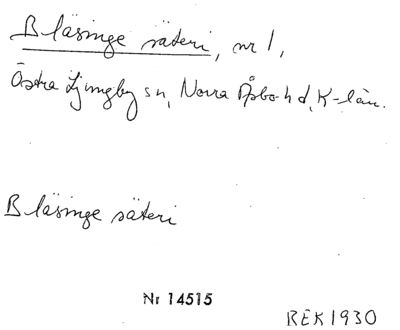 Bläsinge säteri, nr 1,
Östra Ljungby sn, Norra Åsbo hd, K-län.
Bläsinge säteri
Nr 14515
REK 1930